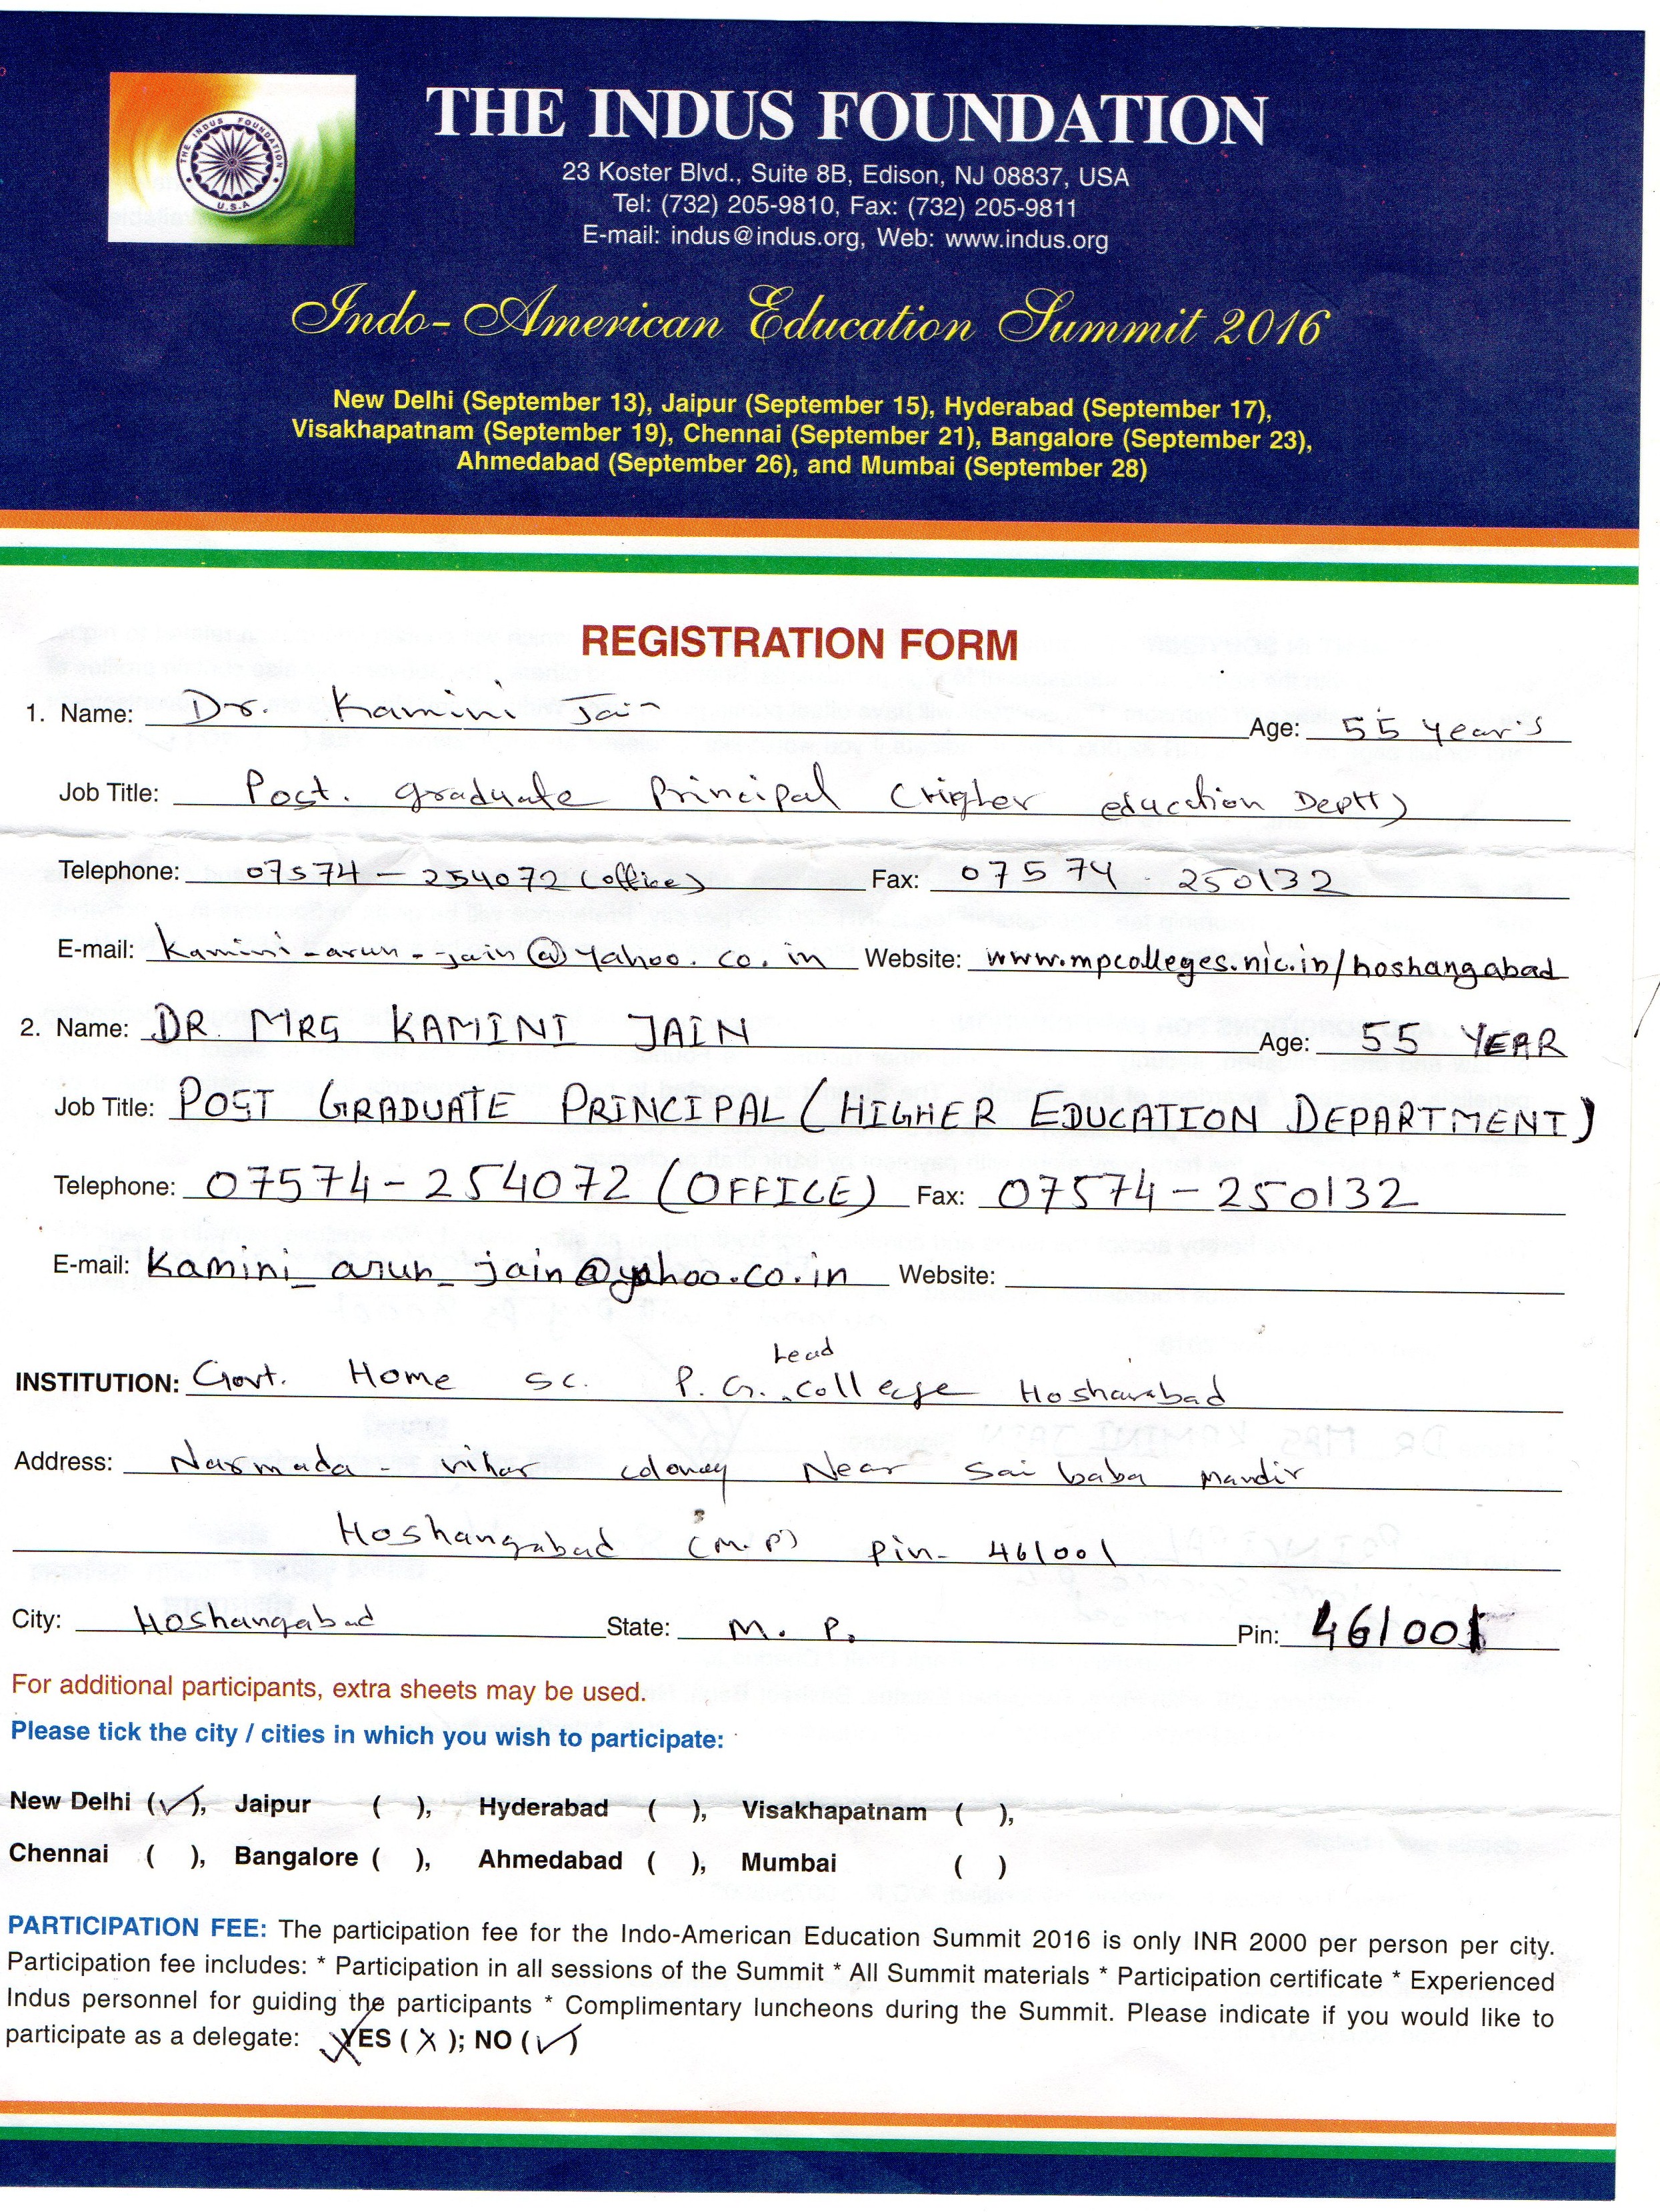 THE INDUS FOUNDATION
U.S.A
THE INDUS FOUNDATION
23 Koster Blvd., Suite 8B, Edison, NJ 08837, USA
Tel: (732) 205-9810, Fax: (732) 205-9811
E-mail: indus@indus.org, Web: www.indus.org
Indo-American Education Summit 2016
New Delhi (September 13), Jaipur (September 15), Hyderabad (September 17),
Visakhapatnam (September 19), Chennai (September 21), Bangalore (September 23),
Ahmedabad (September 26), and Mumbai (September 28)
REGISTRATION FORM
1. Name: Dr. Kamini Jain Age: 55 year's
Job Title: Post. graduate Principal (Higher education Deptt)
Telephone: 07574 - 254072 (office) Fax: 07574 - 250132
E-mail: kamini_arun_jain@yahoo.co.in Website: www.mpcolleges.nic.in/hoshangabad
2. Name: DR. MRS KAMINI JAIN Age: 55 YEAR
Job Title: POST GRADUATE PRINCIPAL (HIGHER EDUCATION DEPARTMENT)
Telephone: 07574-254072 (OFFICE) Fax: 07574-250132
E-mail: Kamini_arun_jain@yahoo.co.in Website:
Lead
INSTITUTION: Govt. Home Sc. P.G. College Hoshanabad
Address: Narmada - vihar colony Near Sai baba Mandir
Hoshangabad (M.P) Pin- 461001
City: Hoshangabad State: M. P. Pin: 461001
For additional participants, extra sheets may be used.
Please tick the city / cities in which you wish to participate:
New Delhi (✓), Jaipur ( ), Hyderabad ( ), Visakhapatnam ( ),
Chennai ( ), Bangalore ( ), Ahmedabad ( ), Mumbai ( )
PARTICIPATION FEE: The participation fee for the Indo-American Education Summit 2016 is only INR 2000 per person per city.
Participation fee includes: * Participation in all sessions of the Summit * All Summit materials * Participation certificate * Experienced
Indus personnel for guiding the participants * Complimentary luncheons during the Summit. Please indicate if you would like to
participate as a delegate: YES ( X ); NO (✓)